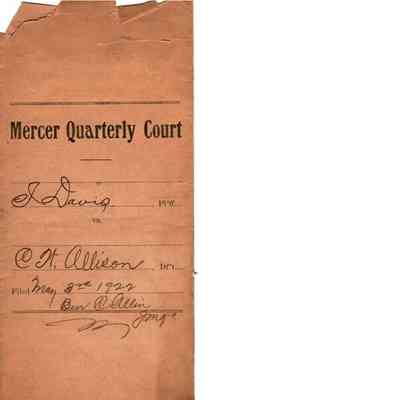 Mercer Quarterly Court
J Davis Plff.
vs.
C H. Allison, Deft.
Filed May 3rd 1922
Ben C Allin